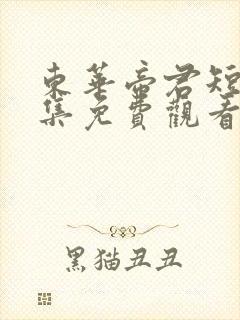 東華帝君短
集免費觀看
黑猫丑丑